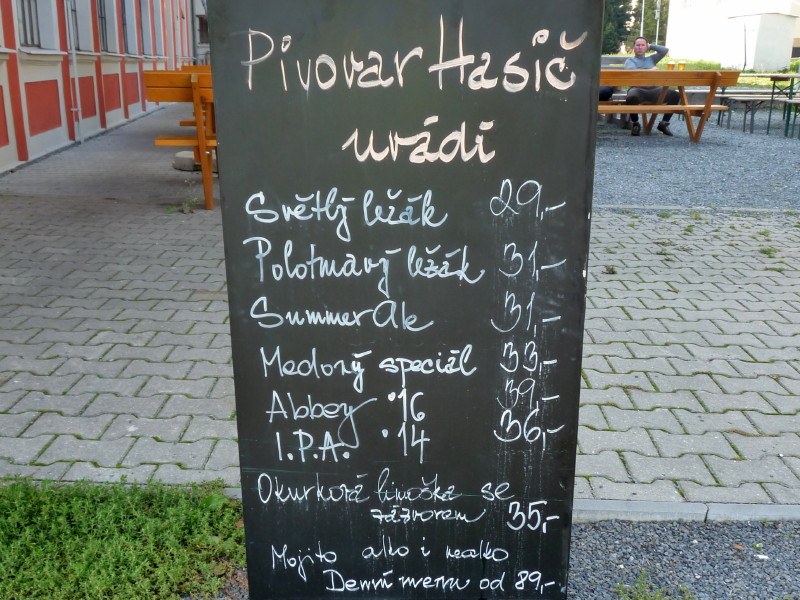 Pivovar Hasič
uvádí
Světlý ležák 29,-
Polotmavý ležák 31,-
Summer Ale 31,-
Medový speciál 33,-
Abbey °16 39,-
I.P.A. °14 36,-
Okurková limoška se
zázvorem 35,-
Mojito alko i nealko
Denní menu od 89,-